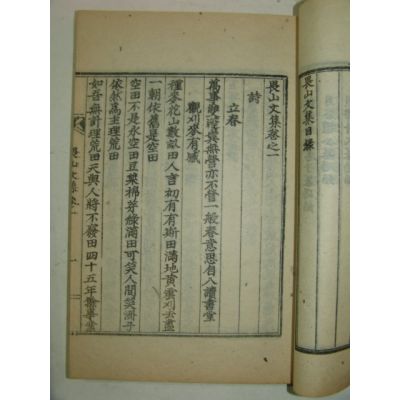 畏山文集目錄
畏山文集卷之一
詩
立春
萬事無營亦不營一般春意思自入讀書堂
觀刈麥有感
種麥花山數畝田人言初有有斯田滿地黃雲刈去盡
一朝依舊是空田
空田不是永空田豆葉棉芽綠滿田可笑人間笑濟子
依然爲主理荒田
如吾無計理荒田天與人將不發田四十五年
畏山文集卷一
一